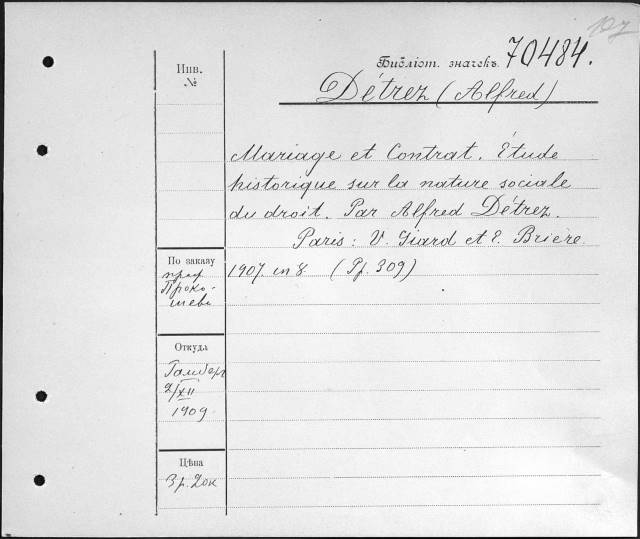 Инв.
№
Библіот. значекъ. 70484.
Détrez (Alfred)
Mariage et Contrat. Étude
historique sur la nature sociale
du droit. Par Alfred Détrez.
Paris: V. Giard et E. Brière
1907. in 8. (Pp. 309)
По заказу
проф
Проко-
шева
Откуда
2/XII
1909
Цѣна
3 р. 20к